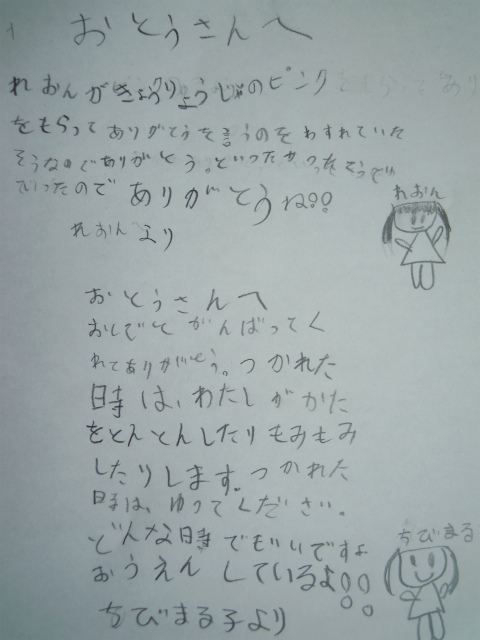 おとうさんへ
れおんがきょうりょうじゃのピンク
をもらってありがとうを言うのをわすれていた
そうなのでありがとう。といったかったそうで
いったのでありがとうね!!
れおんより
れおん
おとうさんへ
おしごとがんばってく
れてありがとう。つかれた
時は、わたしがかた
をとんとんしたりもみもみ
したりします。つかれた
時は、ゆってください。
どんな時でもいいですよ
おうえんしているよ!!
ちびまる子より
ちびまる